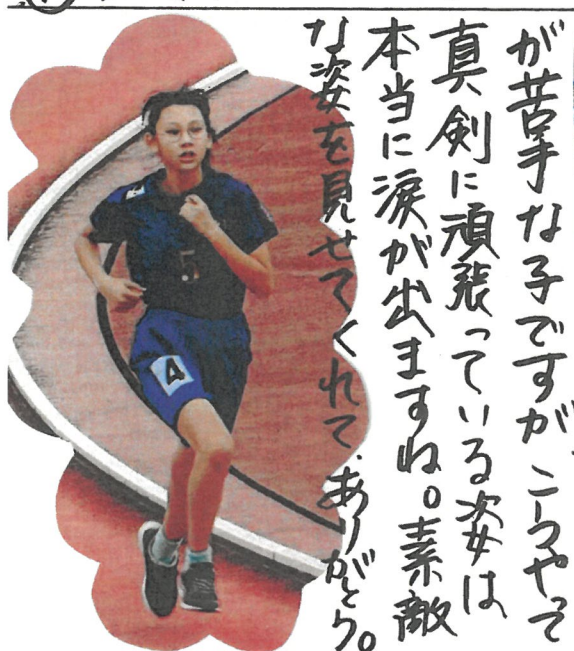 が苦手な子ですが、こうやって
真剣に頑張っている姿は
本当に涙が出ますね。素敵
な姿を見せてくれて、ありがとう。
5
A